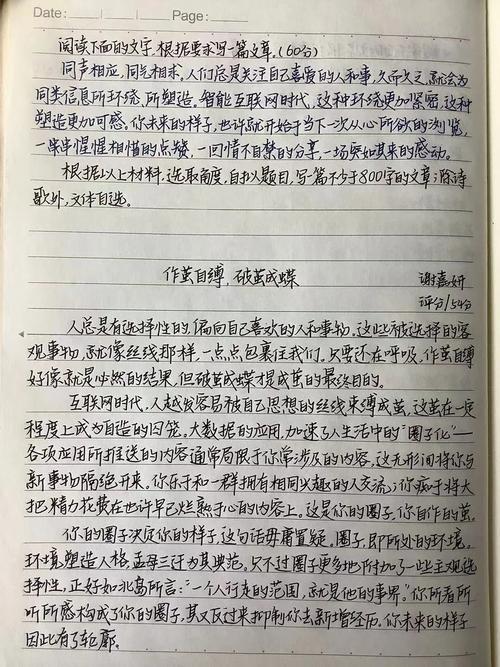 Date: Page:
阅读下面的文字,根据要求写一篇文章.(60分)
同声相应,同气相求,人们总是关注自己喜爱的人和事,久而久之,就会为
同类信息所环绕、所塑造。智能互联网时代,这种环绕更加紧密,这种
塑造更加可感。你未来的样子,也许就开始于当下一次从心所欲的浏览,
一串串惺惺相惜的点赞,一回情不自禁的分享,一场突如其来的感动。
根据以上材料,选取角度,自拟题目,写一篇不少于800字的文章;除诗
歌外,文体自选。
作茧自缚,破茧成蝶 谢嘉妍
评分/54分
人总是有选择性的,偏向自己喜欢的人和事物,这些被选择的客
观事物,就像丝线那样,一点点包裹住我们。只要还在呼吸,作茧自缚
好像就是必然的结果,但破茧成蝶才是成茧的最终目的。
互联网时代,人越发容易被自己思想的丝线束缚成茧,这茧在一定
程度上成为自造的囚笼。大数据的应用,加速了人生活中的“圈子化”——
各项应用所推送的内容通常局限于你常涉及的内容,这无形间将你与
新事物隔绝开来。你乐于和一群拥有相同兴趣的人交流;你痴于将大
把精力花费在也许早已烂熟于心的内容上。这是你的圈子,你自作的茧。
你的圈子决定你的样子,这句话毋庸置疑。圈子,即所处的环境。
环境塑造人格,孟母三迁为其典范。只不过圈子更多地附加了一些主观选
择性,正好如北岛所言:“一个人行走的范围,就是他的世界。”你所看所
听所感构成了你的圈子,其又反过来抑制你去新增经历。你未来的样子
因此有了轮廓。